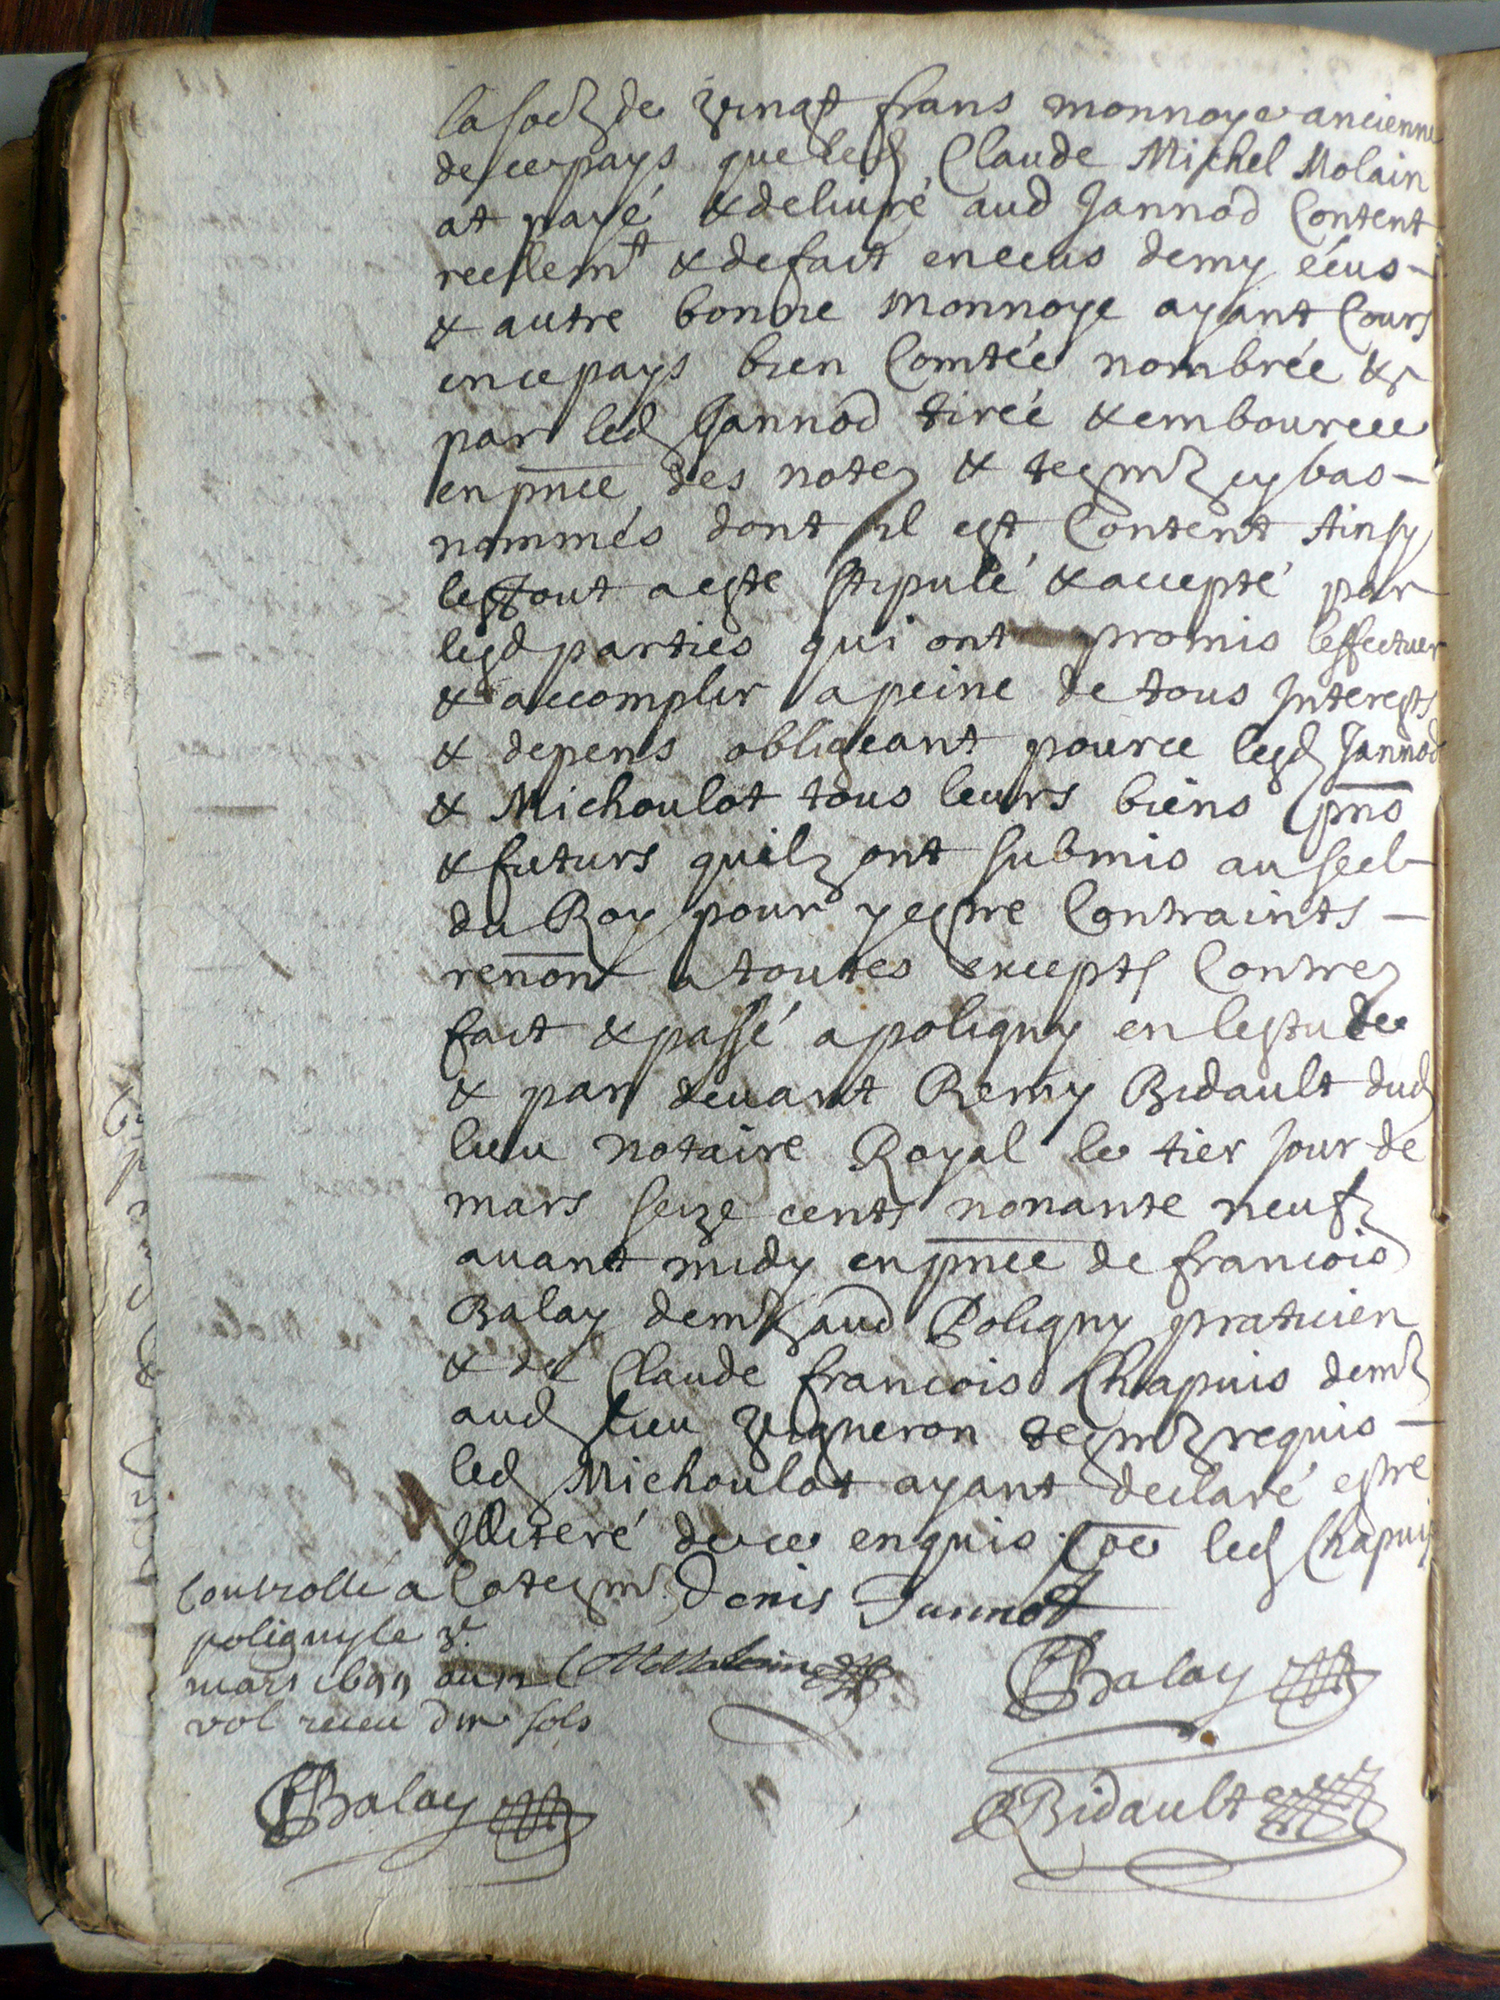 la so[...] de vingt frans monnoye ancienne
de ce pays que led Claude Michel Molain
at payé & deliuré aud Jannod Content
reellemt & de fait en ecus demy écus -
& autre bonne monnoye ayant Cours
en ce pays bien Comtée nombrée &
par led Jannod tirée & embourcee
en pnce des notes & tesm cy bas -
nommés dont il est Content Ainsy
les tout a este stipulé & accepté par
lesd parties qui ont promis l'effectuer
& accomplir a peine de tous Interests
& depens obligeant pour ce lesd Jannod
& Michoulot tous leurs biens pns
& futurs quilz ont submis au seel -
du Roy pour y estre Contraints -
renont a toutes excepts Contres
fait & passé a poligny en lestude
& par deuant Remy Bidault dud
lieu notaire Royal le tier Jour de
mars seize cents nonante neufz
auant midy en pnce de francois
Balay demt aud Poligny praticien
& de Claude francois Chapuis demt
aud lieu vigneron tesm requis -
led Michoulot ayant declaré estre
Illiteré de ce enquis Coe led Chapuis
Cotesm Denis Jannot
Controllé a
poligny le 3e
mars 1699 au 12
vol receu dix sols
C M Molain
Balay
Balay
R Bidault